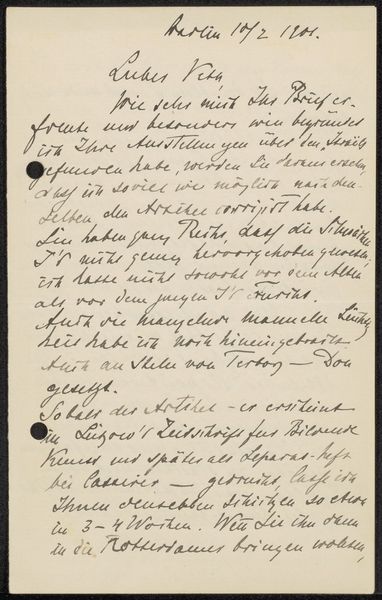 Berlin 10/2 1901.
Lieber Veth,
Wie sehr mich Ihr Brief er-
freute und besonders wie begründet
ich Ihre Ausstellungen über den Israëls
gefunden habe, werden Sie daraus ersehen,
dass ich soviel wie möglich nach den-
selben den Artikel corrigirt habe.
Sie haben ganz Recht, dass die
J's nicht genug hervorgehoben
ich hatte nicht sowohl vor dem Alten
als vor dem jungen J's
Auch die mangelnde manuelle
keit habe ich noch hineingebracht
Auch an Stelle von Terborg — Dou
gesetzt.
Sobald der Artikel — er erscheint
in Lützow's Zeitschrift für Bildende
Kunst und später als Separat-heft
bei Cassirer — gedruckt, lasse ich
Ihnen denselben schicken so etwa
in 3-4 Wochen. Wenn Sie ihn dann
in die Rotterdamer bringen wollten,